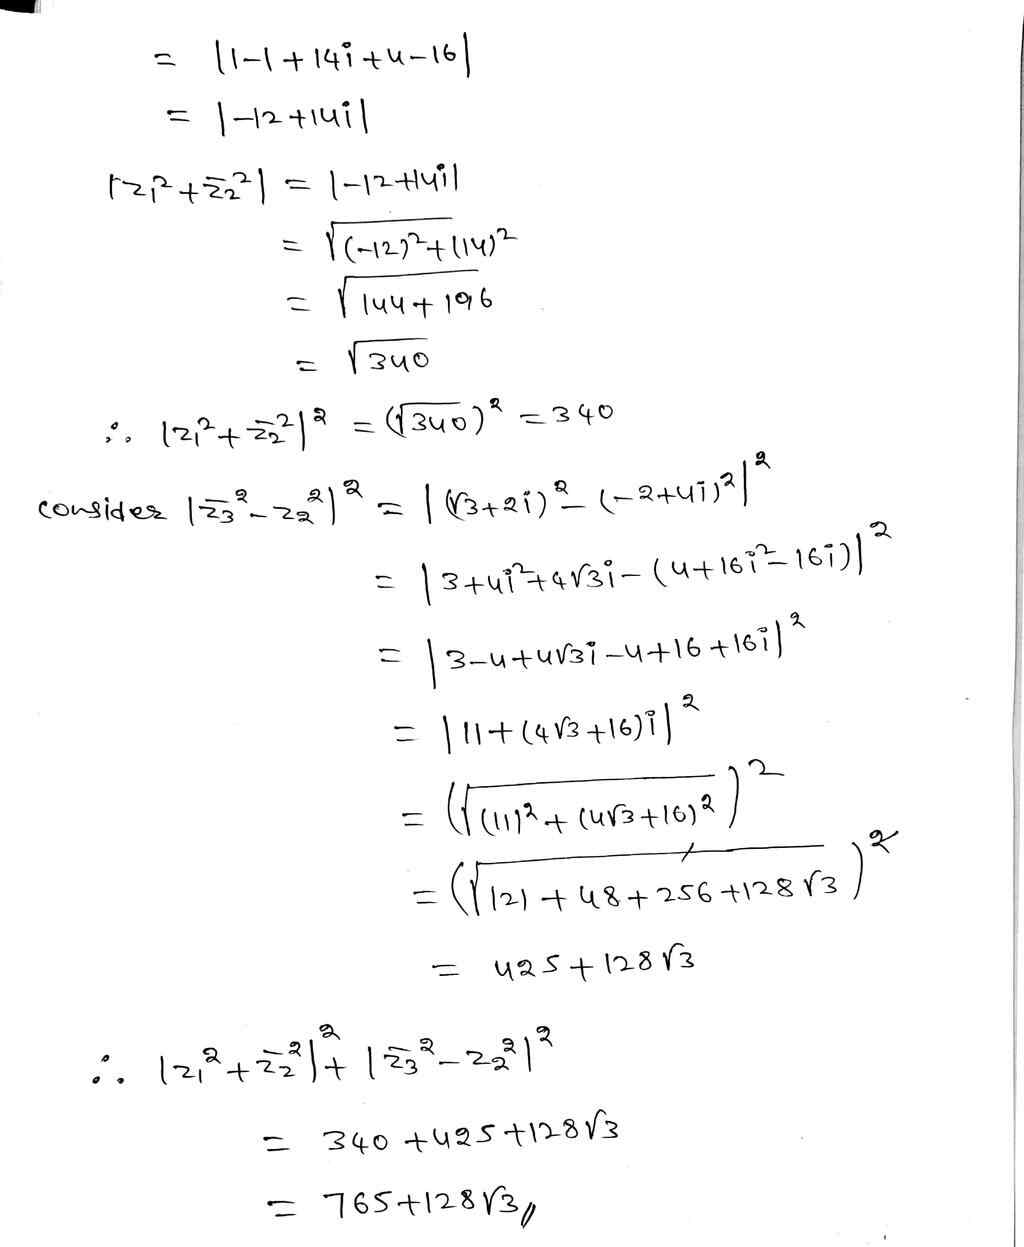 = |1-1+14i+4-16|
= |-12+14i|
|z₁²+z̄₂²| = |-12+14i|
= √((-12)²+(14)²
= √(144+196)
= √340
∴ |z₁²+z̄₂²|² = (√340)² = 340
consider |z̄₃²-z₂²|² = |(√3+2i)²-(-2+4i)²|²
= |3+4i²+4√3i-(4+16i²-16i)|²
= |3-4+4√3i-4+16+16i|²
= |11+(4√3+16)i|²
= (√((11)²+(4√3+16)²))²
= (√(121+48+256+128√3))²
= 425+128√3
∴ |z₁²+z̄₂²|²+|z̄₃²-z₂²|²
= 340+425+128√3
= 765+128√3//